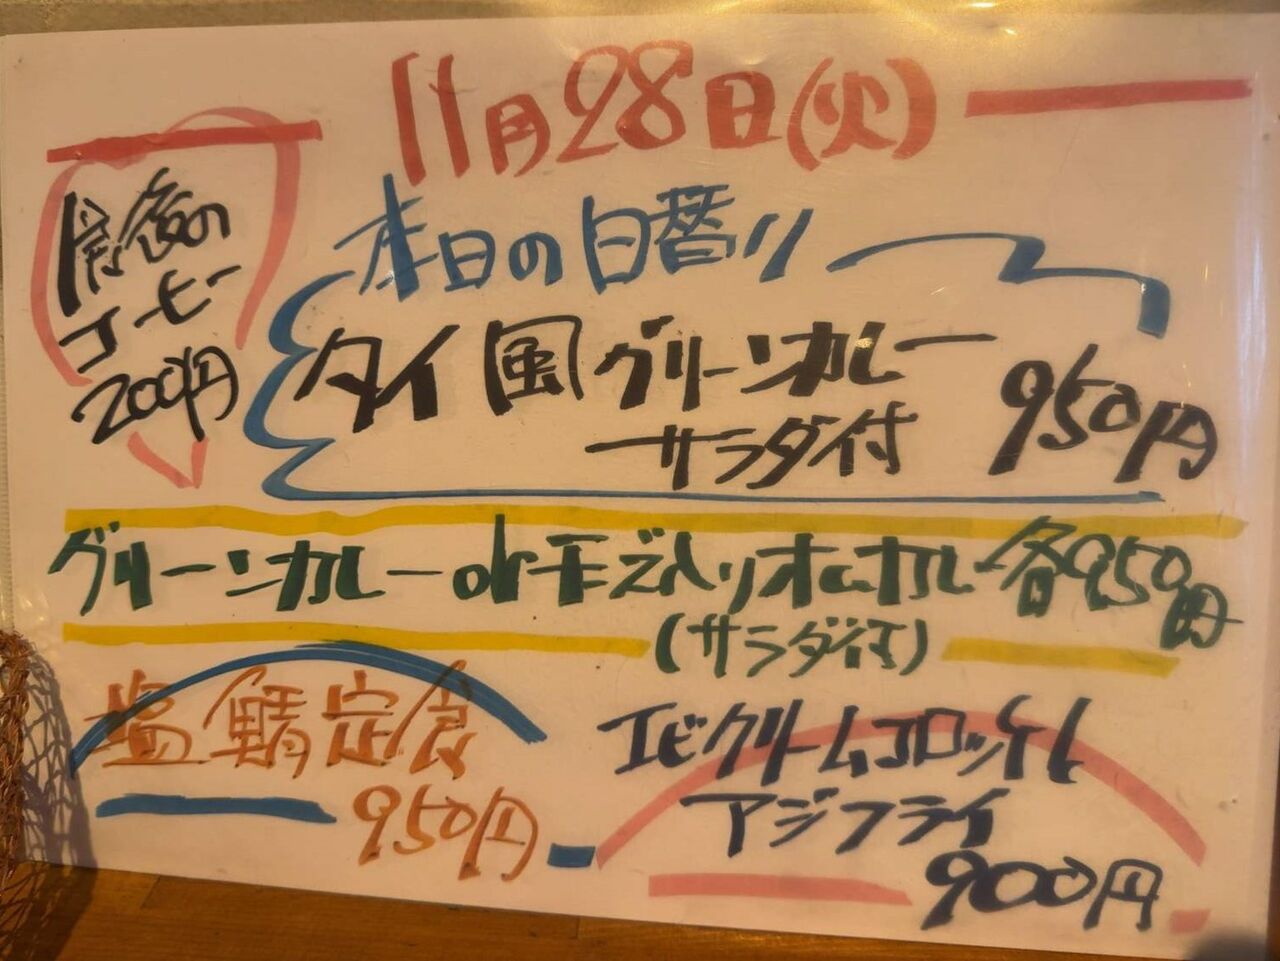 11月28日(火)
食後の
コーヒー
200円
本日の日替り
タイ風グリーンカレー
サラダ付
950円
グリーンカレーorチーズ入りオムカレー各950円
(サラダ付)
塩鯖定食
950円
エビクリームコロッケと
アジフライ
900円